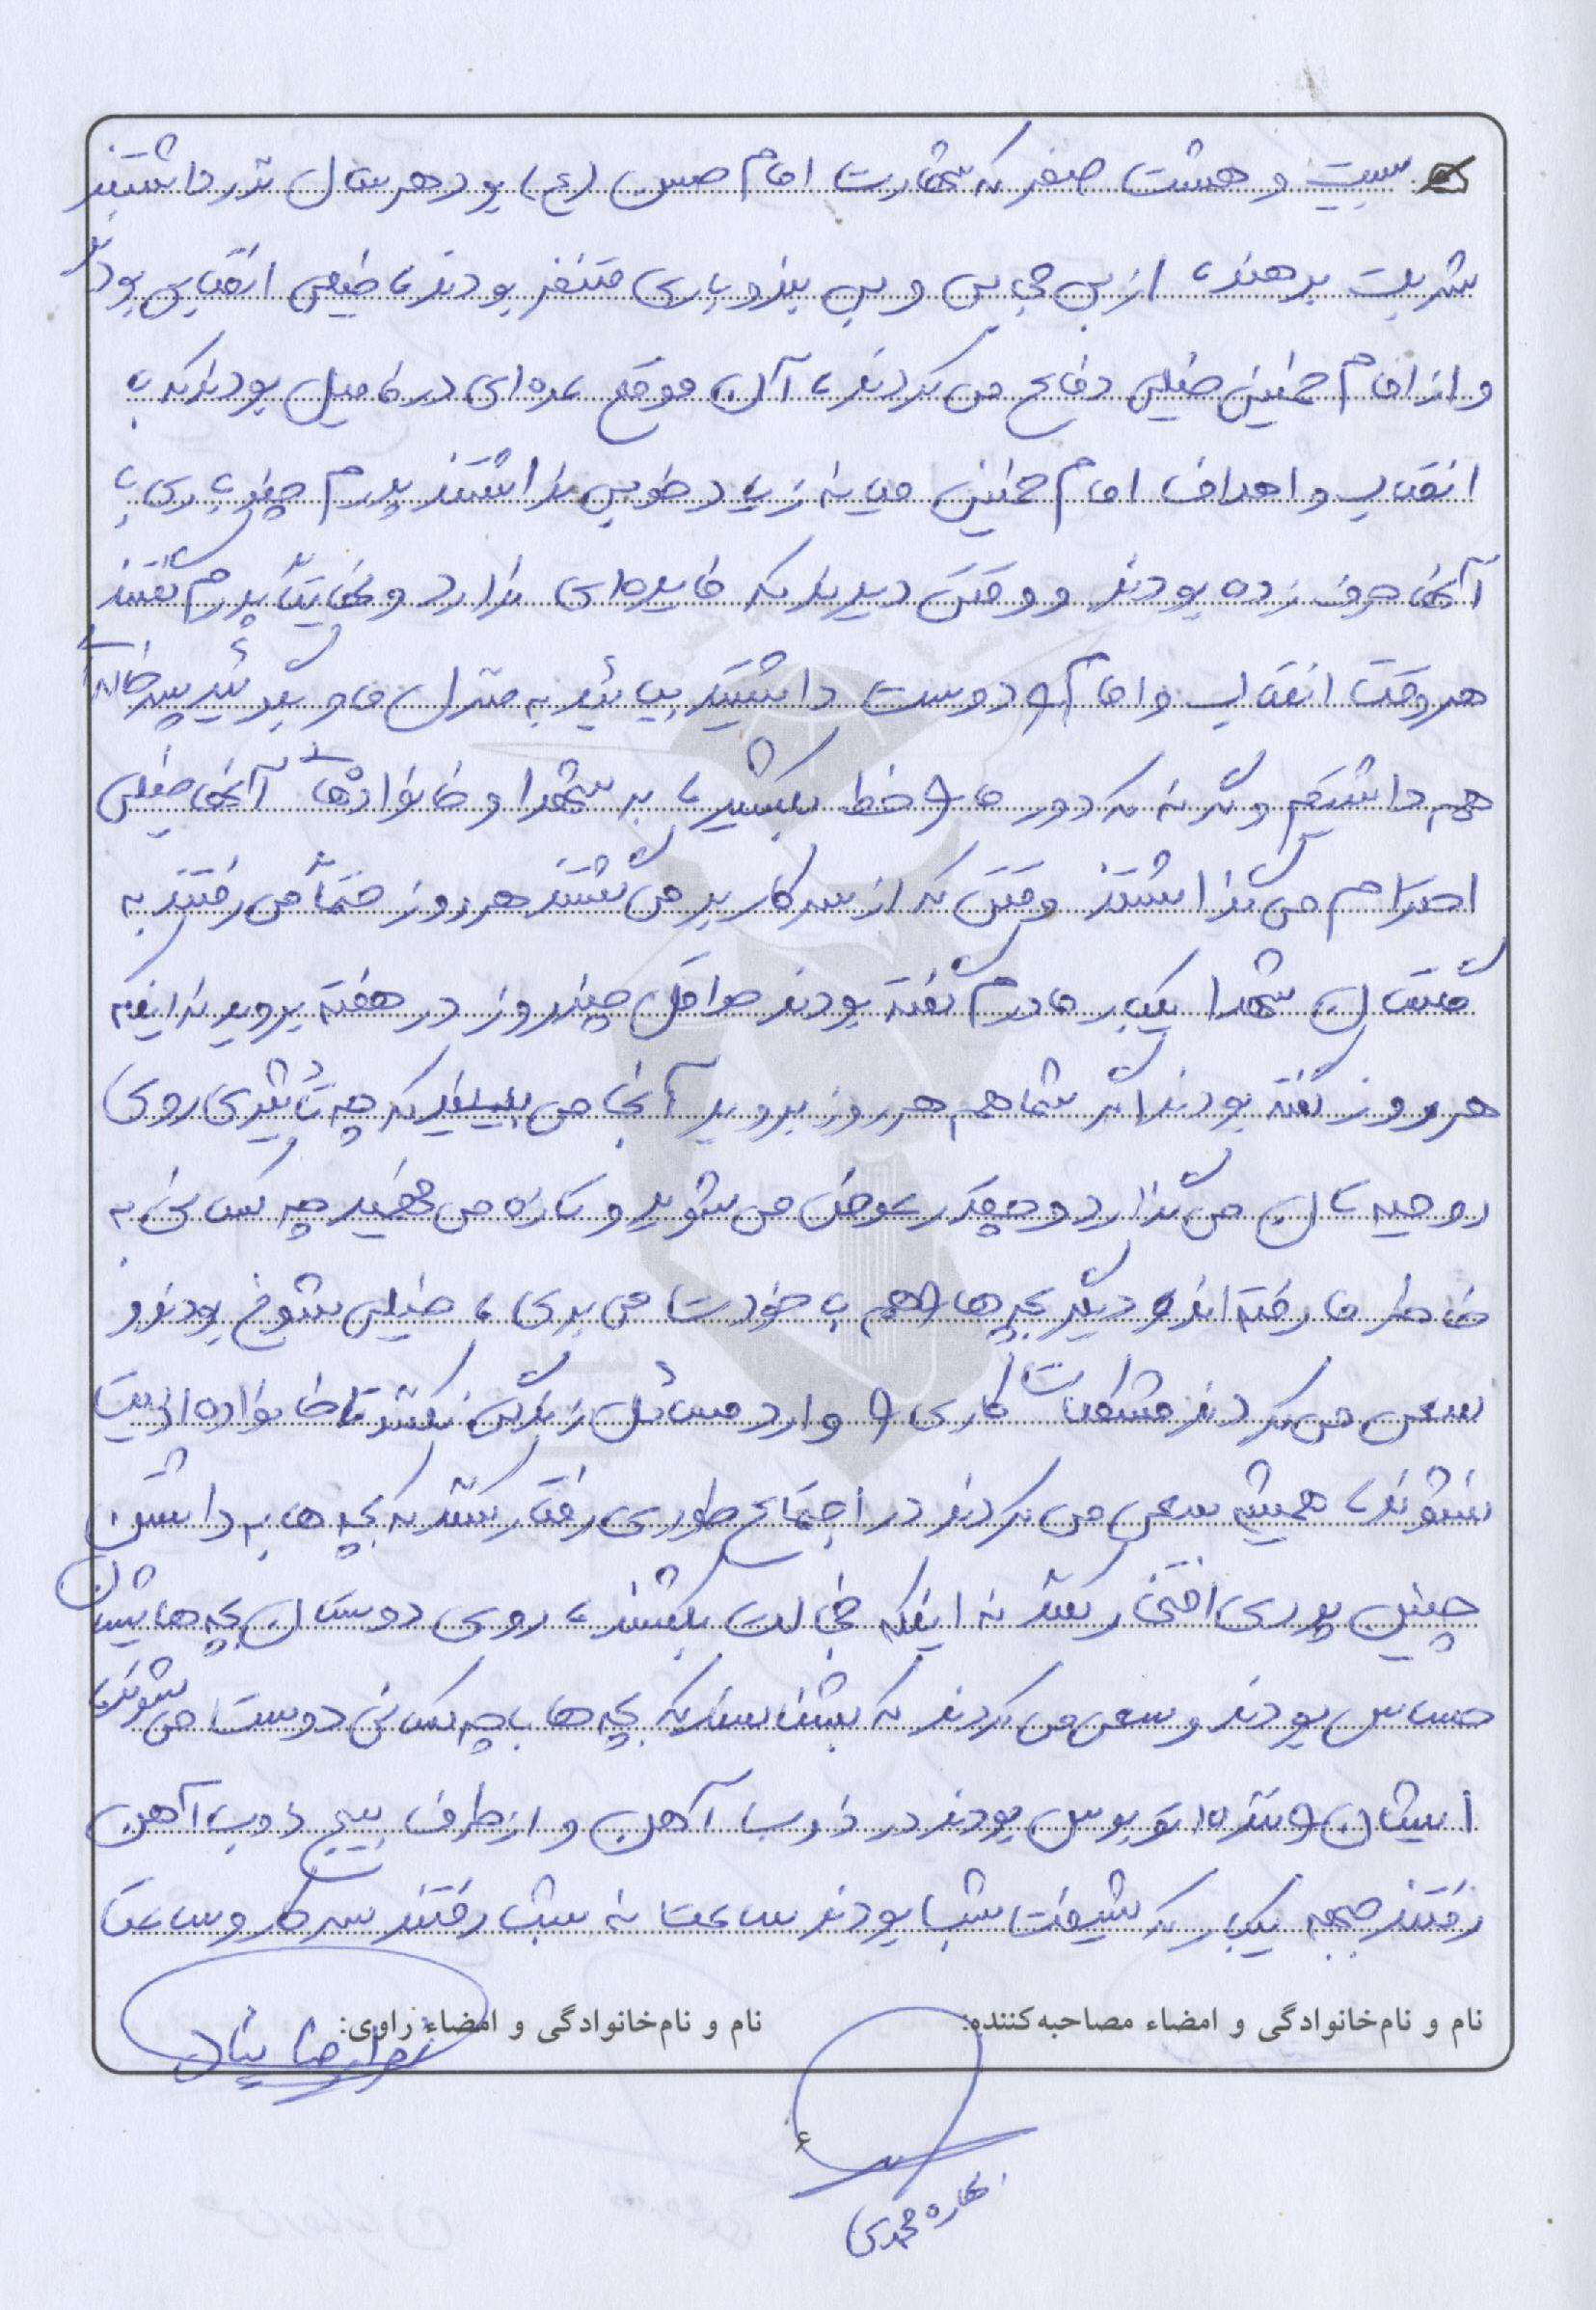 بیست و هشت صفر که شهادت امام حسن (ع) بود هر سال نذر داشتند
شربت بدهند، از بی حجابی و بی بندوباری متنفر بودند، خیلی انقلابی بودند
و از امام خمینی خیلی دفاع می کردند، آن موقع عده ای در فامیل بودند که با
انقلاب و اهداف امام خمینی میانه زیاد خوبی نداشتند پدرم چند باری با
آنها حرف زده بودند و وقتی دیدند که فایده ای ندارد و نهایتاً پدرم گفتند
هر وقت انقلاب و امام را دوست داشتید بیائید به منزل ما و بگوئید پسر خاله ای
هم داشتیم وگرنه که دور ما را خط بکشید، به شهدا و خانواده های آنها خیلی
احترام می گذاشتند وقتی که از سر کار بر می گشتند هر روز حتماً می رفتند به
گلستان شهدا یکبار مادرم گفته بودند حداقل چند روز در هفته بروید نه اینکه
هر روز گفته بودند اگر شما هم هر روز بروید آنجا می بینید که چه تأثیری روی
روحیه تان می گذارد و چقدر عوض می شوید و تازه می فهمید چه کسانی به
خاطر ما رفته اند و دیگر بچه ها را هم با خودت می بری، خیلی شوخ بودند و
سعی می کردند مشکلات کاری را وارد مسائل زندگی نکنند تا خانواده اذیت
نشوند، همیشه سعی می کردند در اجتماع طوری رفتار کنند که بچه ها به داشتن
چنین پدری افتخار کنند نه اینکه خجالت بکشند، روی دوستان بچه هایشان
حساس بودند و سعی می کردند که بشناسند که بچه ها با چه کسانی دوست می شوند،
ایشان راننده اتوبوس بودند در ذوب آهن و از طرف بسیج ذوب آهن
رفتند جبهه یکبار که شیفت شب بودند ساعت نه شب رفتند سر کار و ساعت
نام و نام‌خانوادگی و امضاء مصاحبه‌کننده:
نام و نام‌خانوادگی و امضاء راوی:
۶
بهاره محمدی